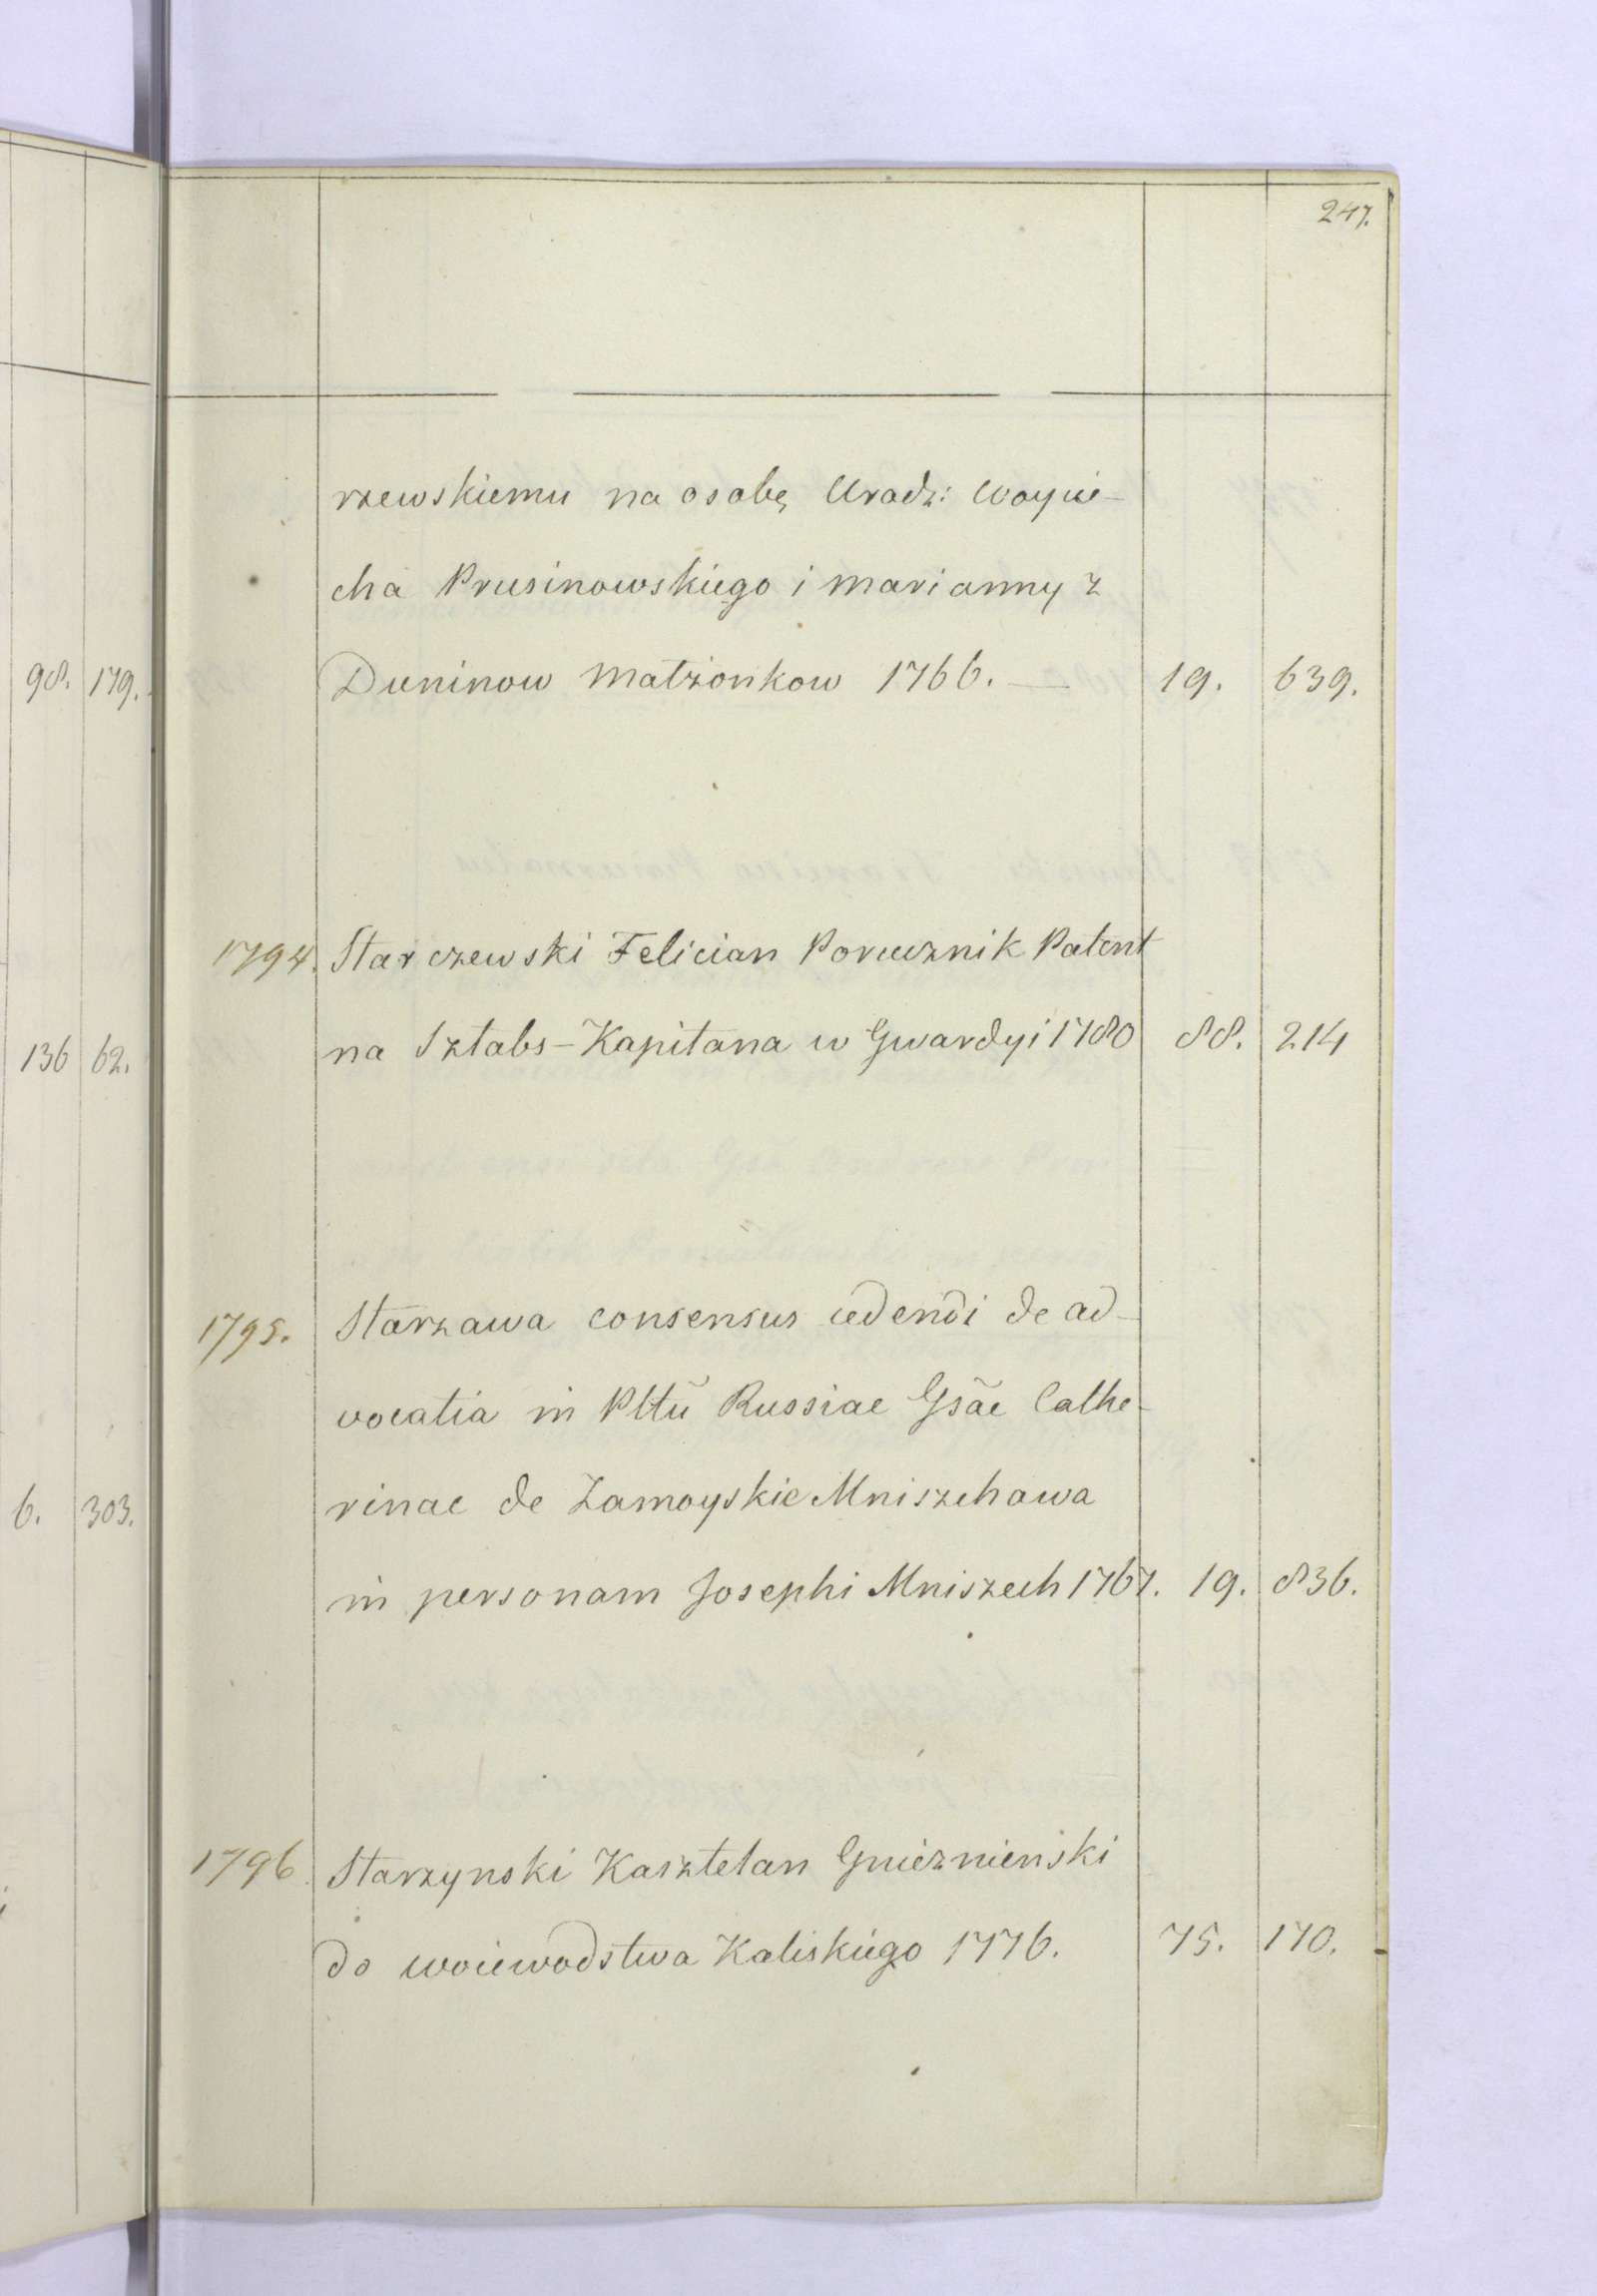 247.
rzewskiemu na osobę Urodz: Woycie-
cha Prusinowskiego i Marianny z
Duninow Małżonkow 1766. — 19. 639.
98. 179.
1794. Starczewski Felician Porucznik Patent
na Sztabs-Kapitana w Gwardyi 1780 88. 214
136 62.
1795. Starzawa consensus cedendi de ad-
vocatia in Pltũ Russiae Gsãe Cathe-
rinae de Zamoyskie Mniszchowa
in personam Josephi Mniszech 1767. 19. 836.
6. 303.
1796 Starzynski Kasztelan Gnieznienski
do woiewodstwa Kaliskiego 1776. 75. 170.